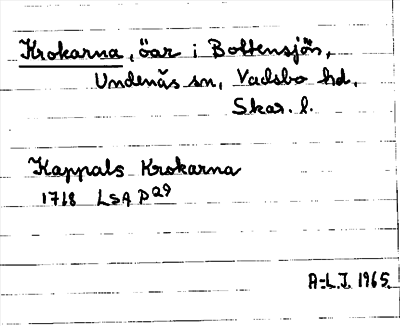 Krokarna, öar i Bottensjön,
Undenäs sn, Vadsbo hd,
Skar. l.
Kappals Krokarna
1718 LSA P29
A-L.J. 1965